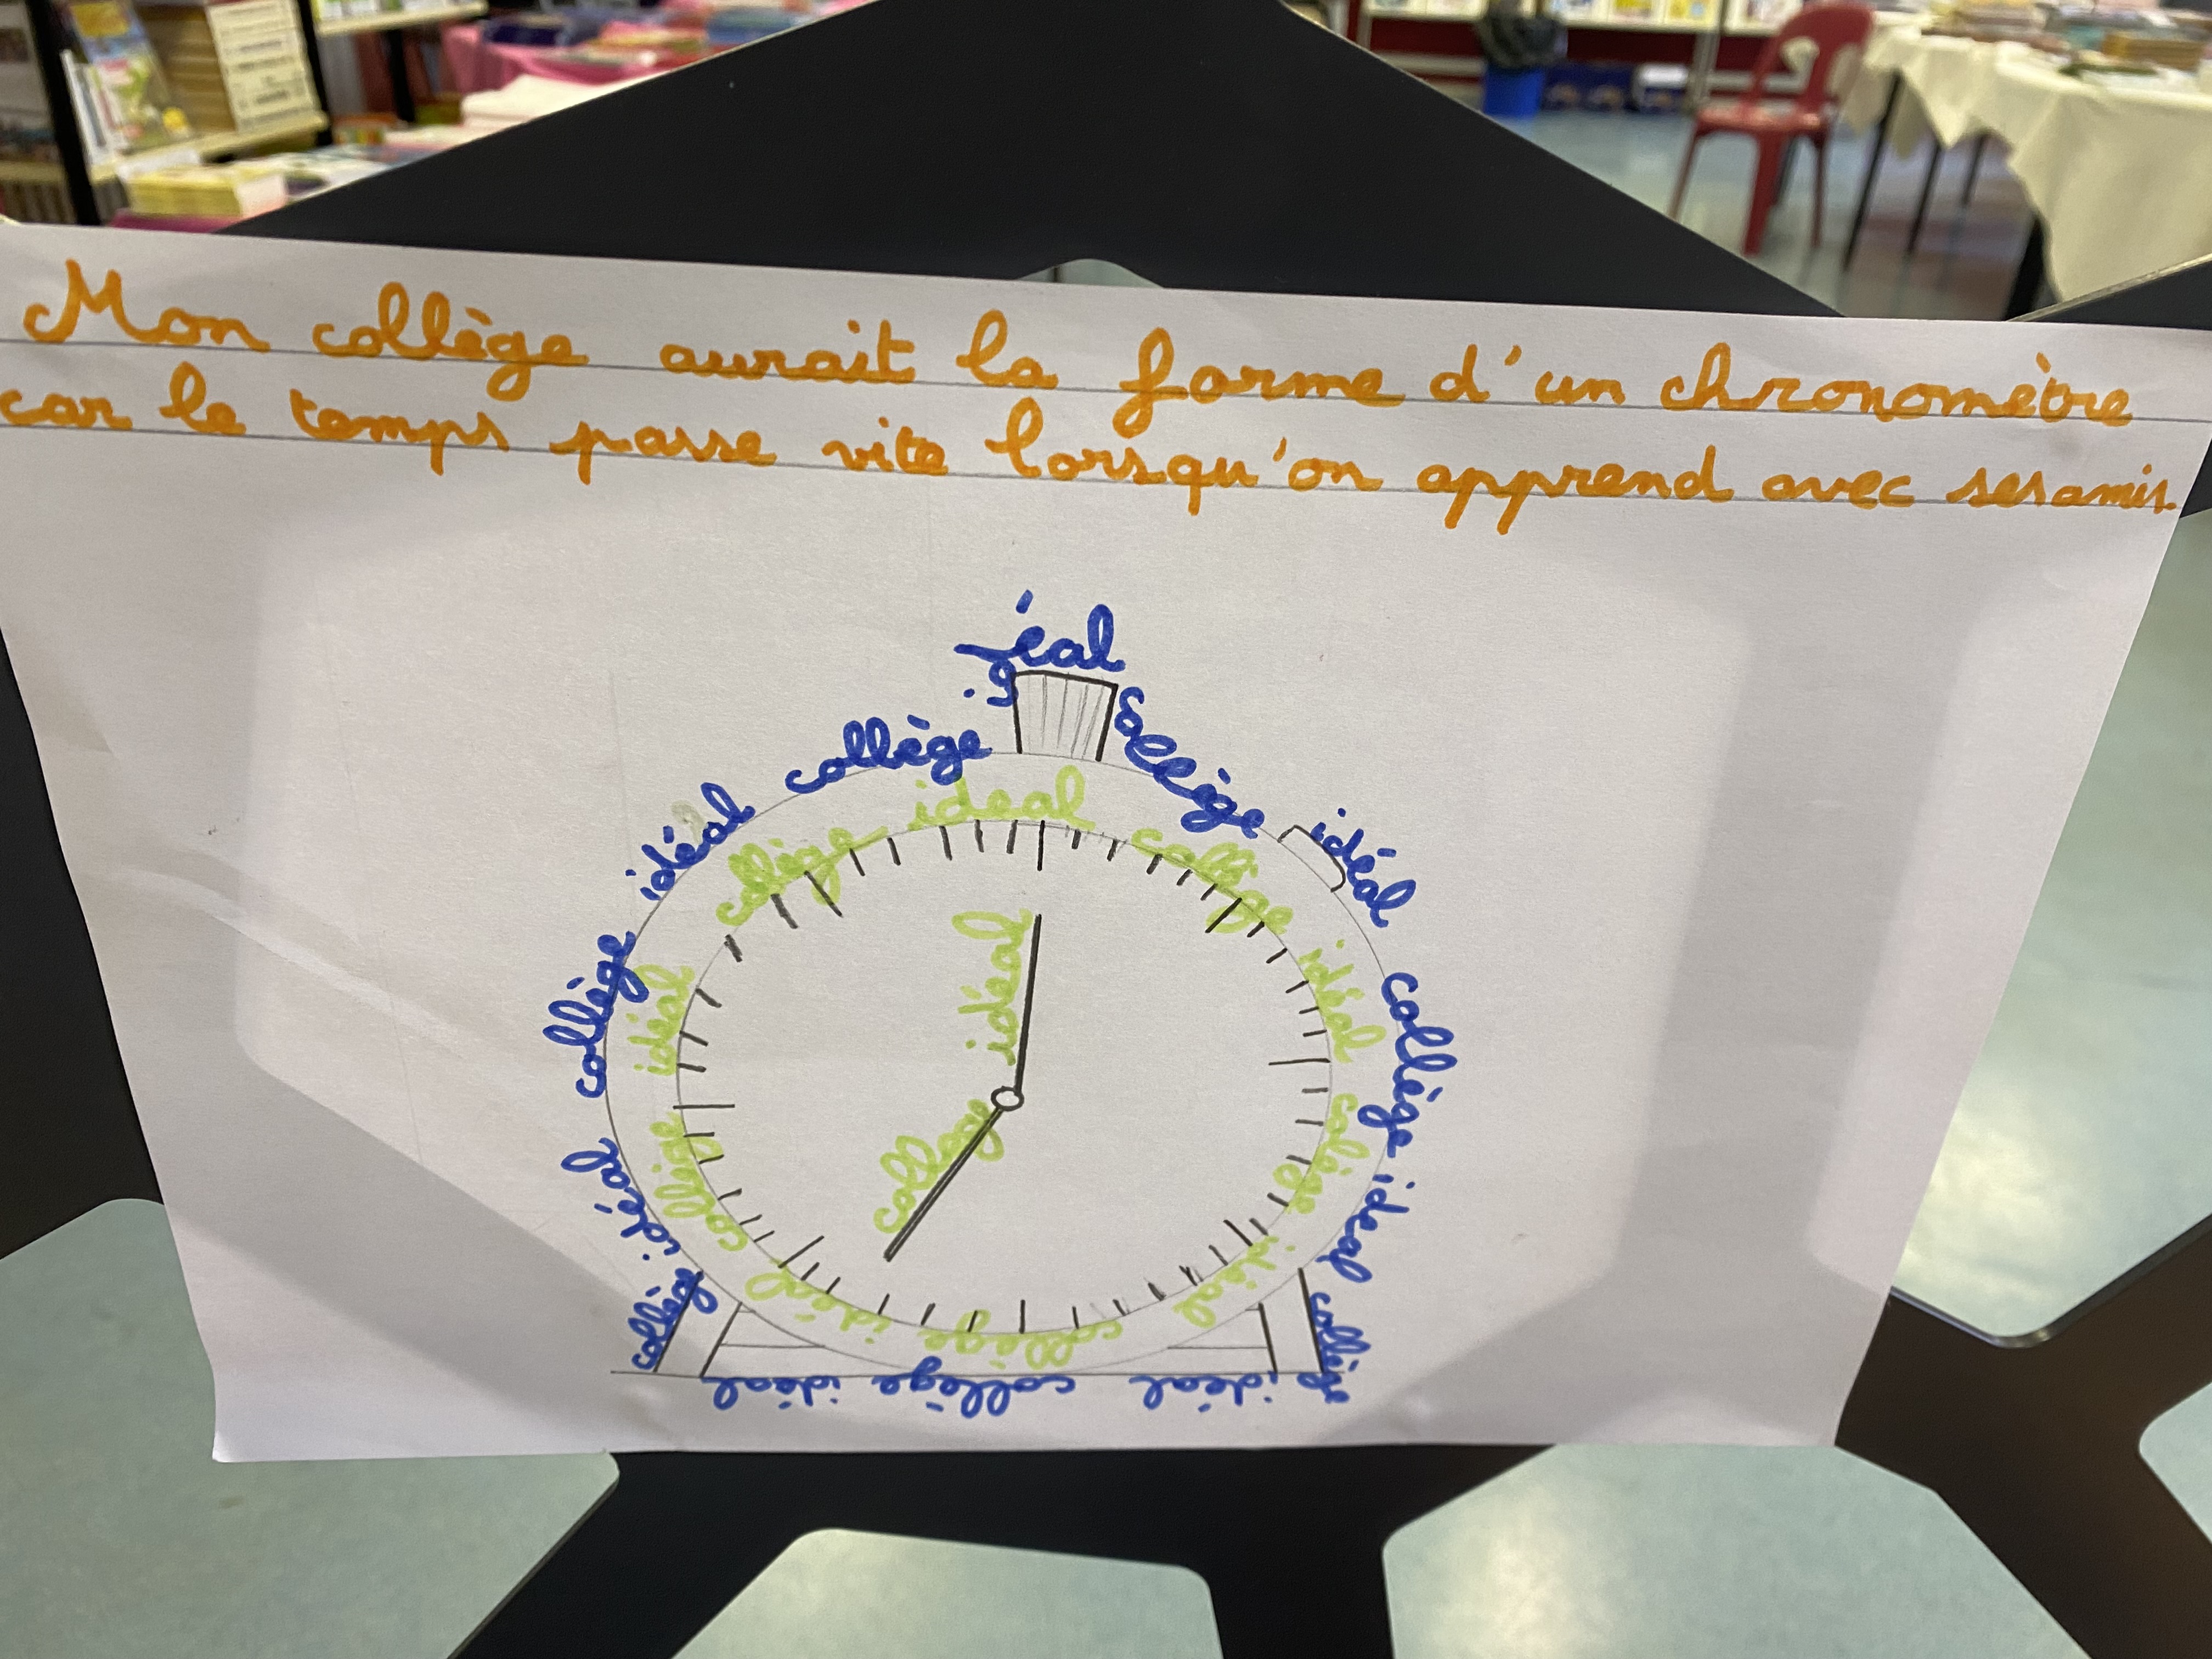 Mon collège aurait la forme d'un chronomètre
car le temps passe vite lorsqu'on apprend avec ses amis.
idéal collège idéal collège idéal collège idéal collège idéal collège idéal collège idéal collège
ideal collège idéal collège idéal collège idéal collège idéal collège
idéal
collège